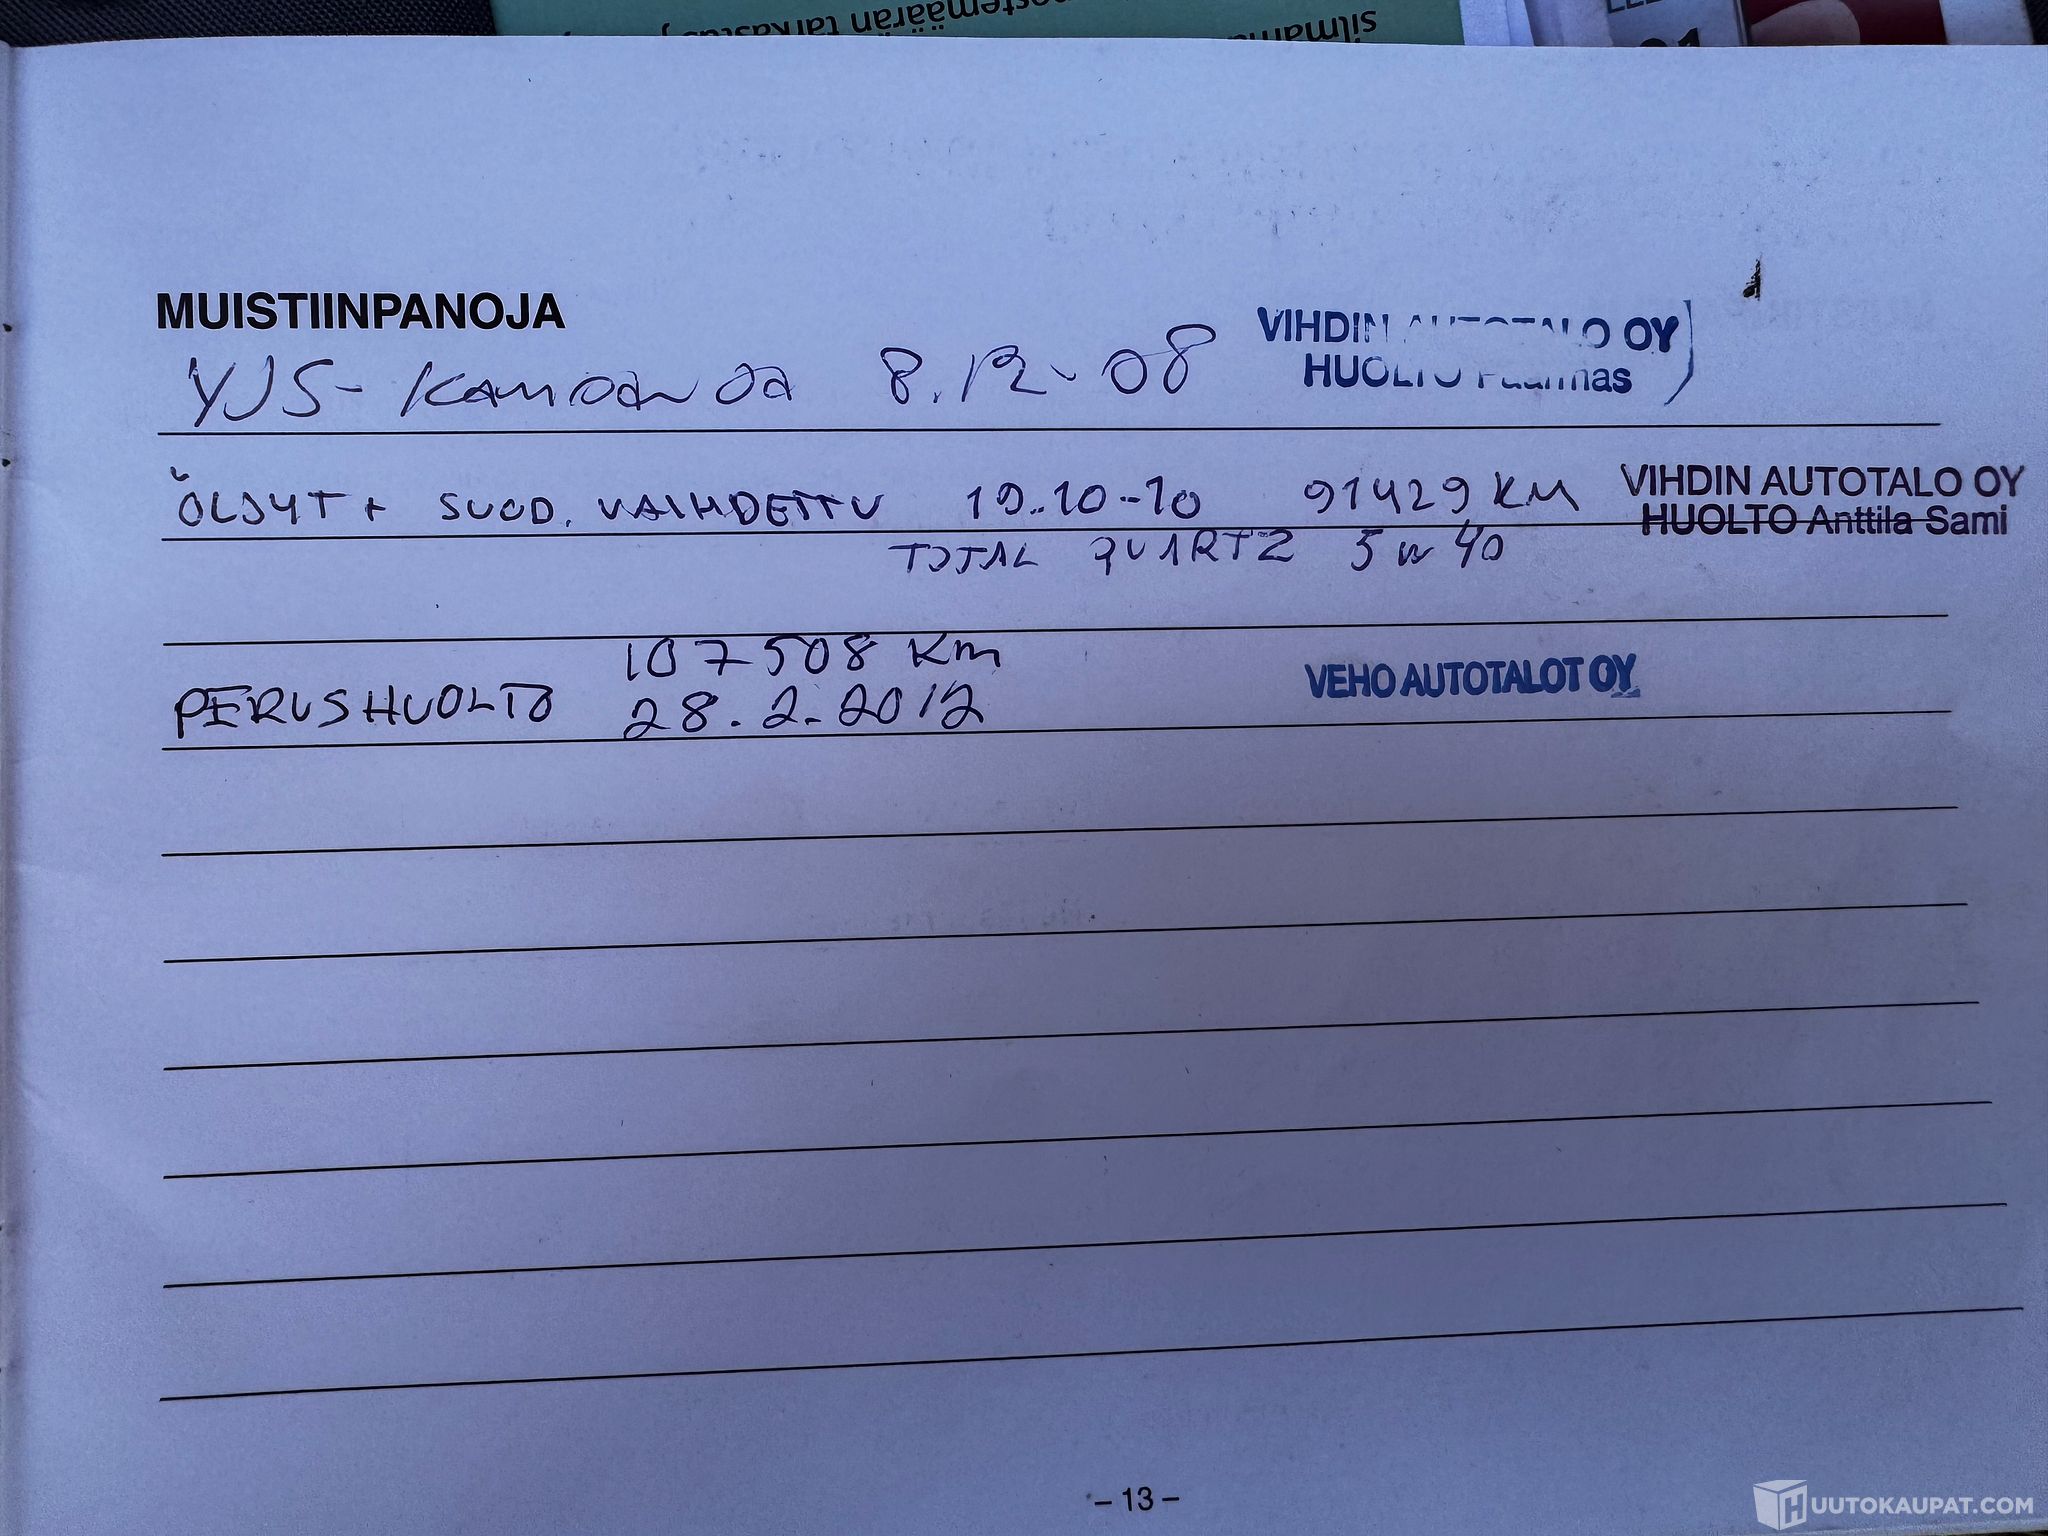 silmämä
nestemäärän tarkastus
MUISTIINPANOJA
YJS- 8.12-08 VIHDIN AUTOTALO OY
HUOLTO
ÖLJYT + SUOD. VAIHDETTU 19.10-10 91429 KM VIHDIN AUTOTALO OY
HUOLTO Anttila Sami
TOTAL QUARTZ 5 w 40
107508 Km
PERUSHUOLTO 28.2.2012 VEHO AUTOTALOT OY
– 13 –
HUUTOKAUPAT.COM